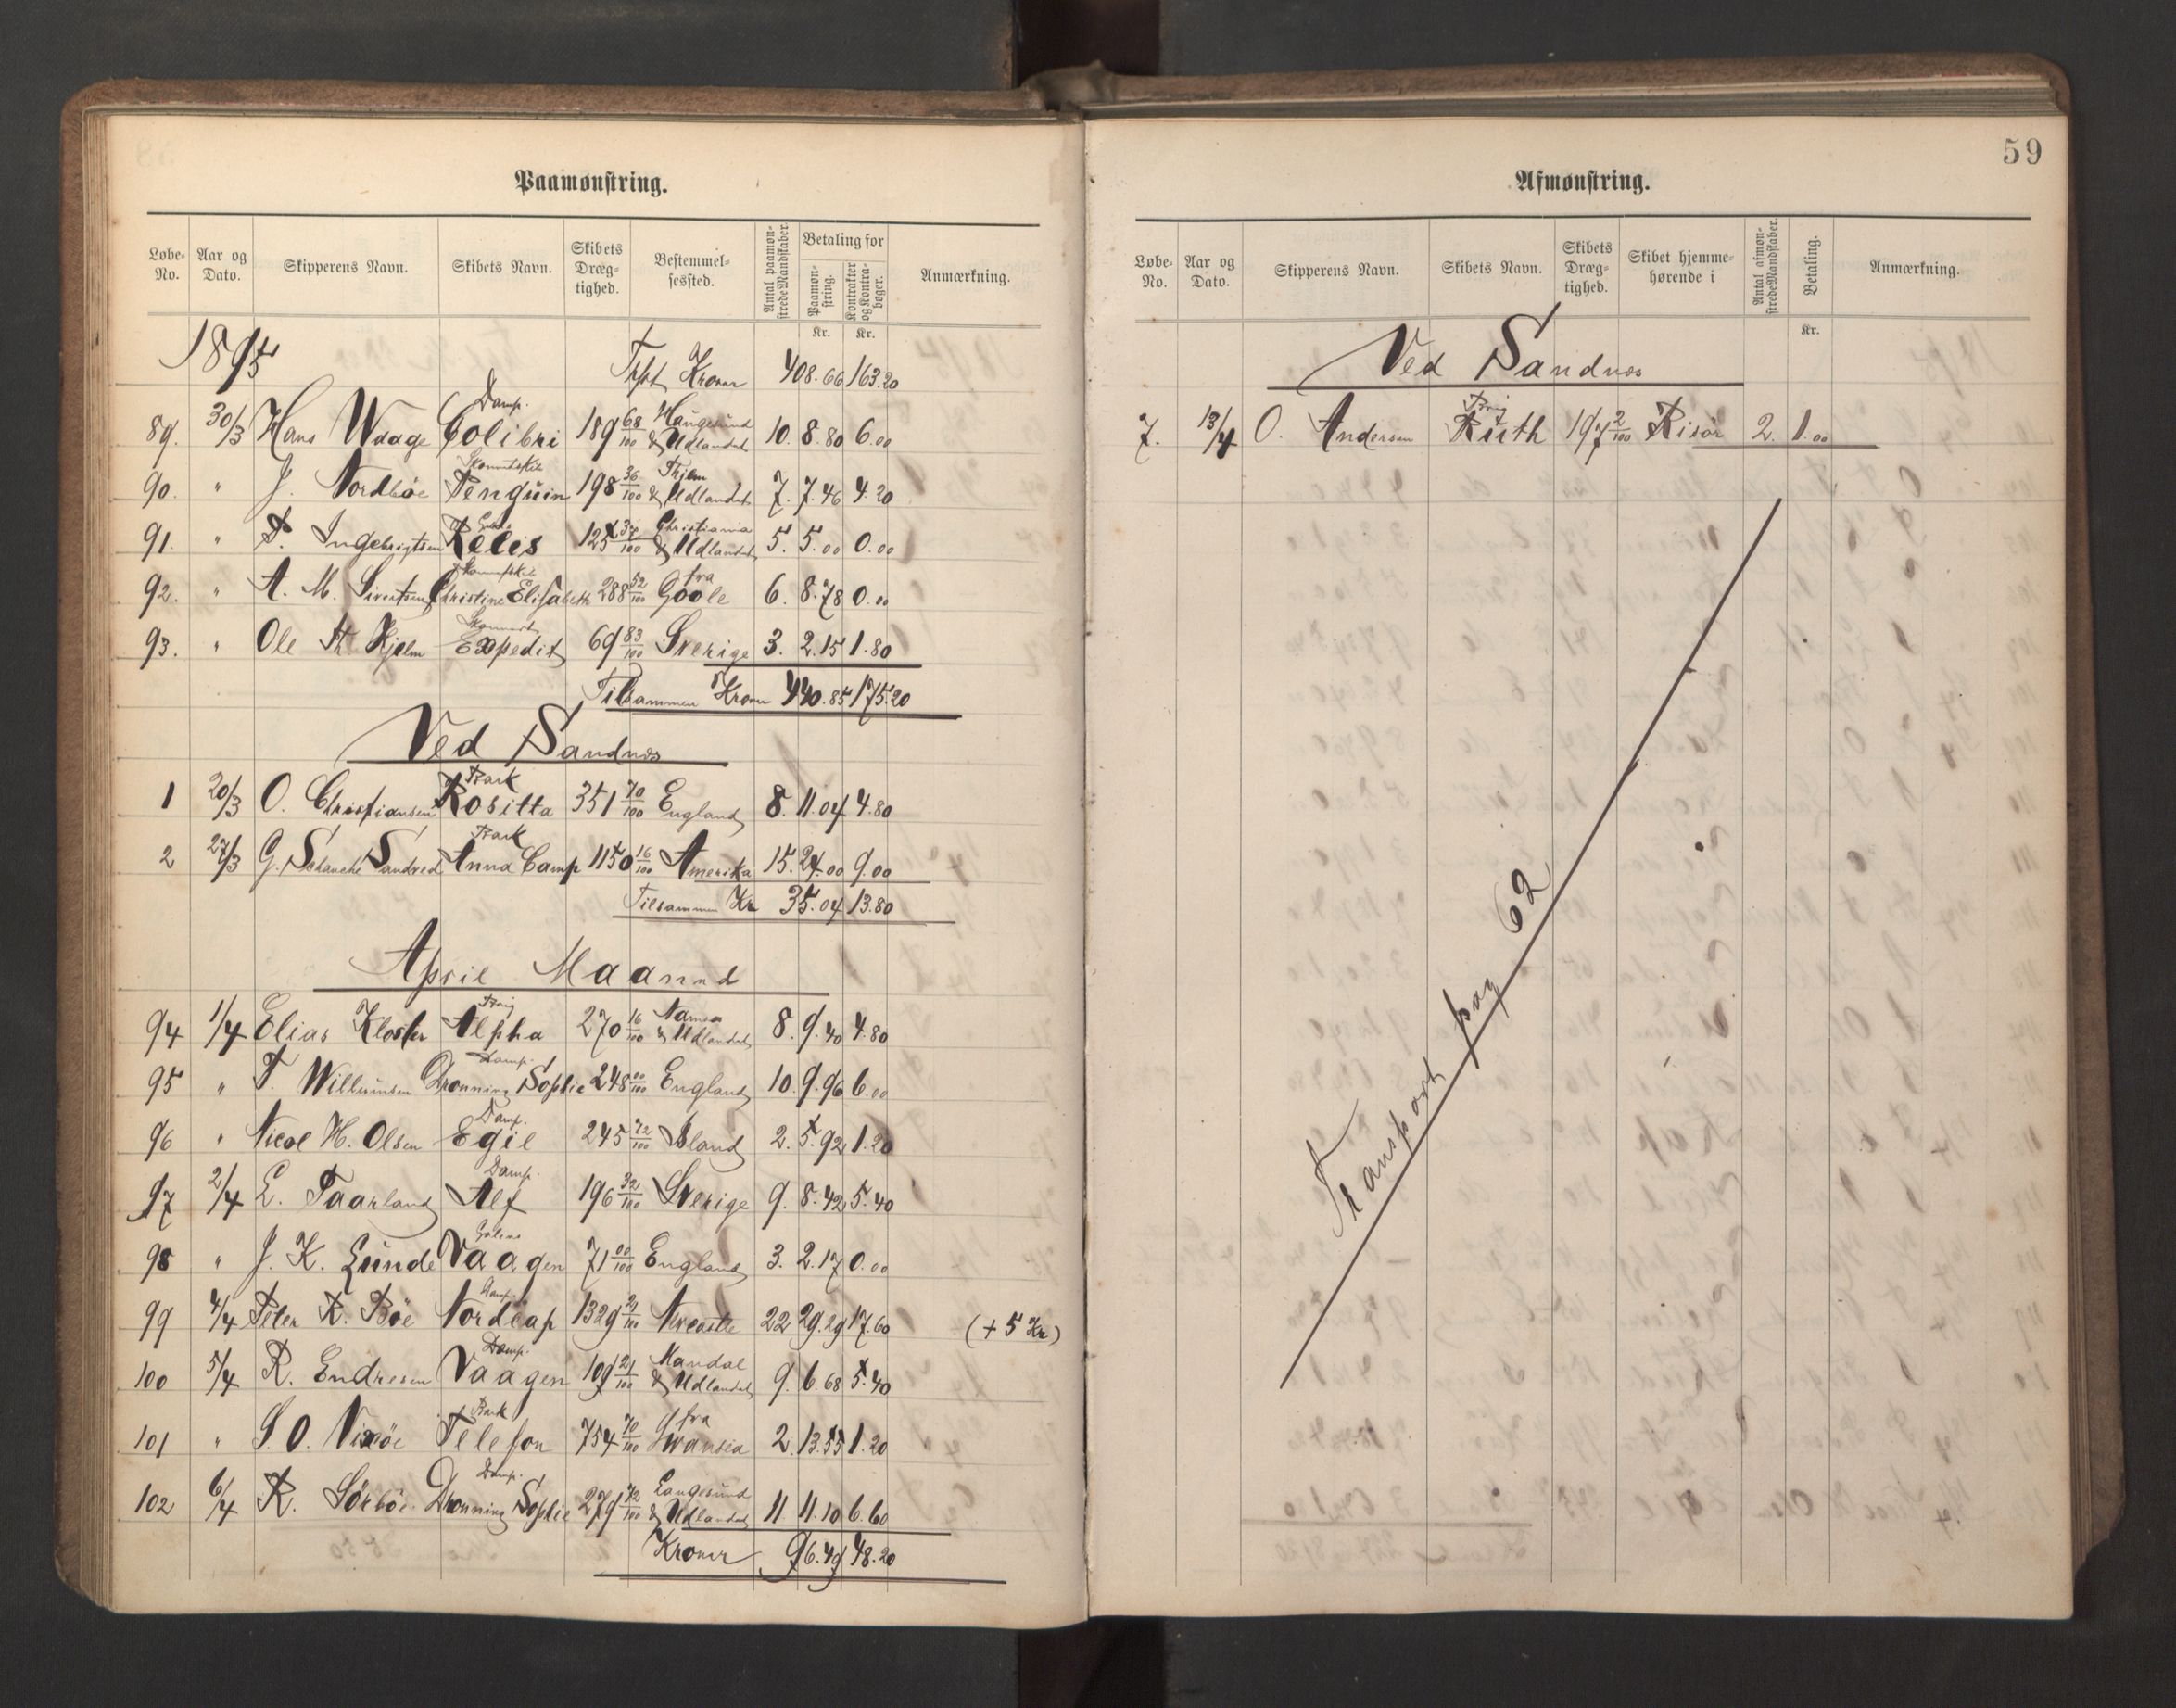 Paamønstring.
Løbe-No. Aar og Dato. Skipperens Navn. Skibets Navn. Skibets Dræg-tighed. Bestemmel-sessted. Antal paamøn-strede Mandskaber. Betaling for Paamøn-string. Kontrakter og Kontra-bøger. Anmærkning.
Kr. Kr.
1895 Trpt Kroner 408.66 163.20
89. 30/3 Hans Waage Damp. Colibri 189 68/100 Haugesund & Udlandet 10. 8.80 6.00
90. " J. Nordböe Skonnertskib Penguin 198 36/100 Thjem & Udlandet 7. 7.46 4.20
91. " P. Ingebrigtsen Reeis 125 37/100 Christiania & Udlandet 5. 5.00 0.00
92. " A. M. Sivertsen Christine Elisabeth 288 52/100 fra Goole 6. 8.78 0.00
93. " Ole Th Hjelm Skonnert Expedit 69 83/100 Sverige 3. 2.15 1.80
Tilsammen Kroner 440.85 175.20
Ved Sandnæs
1 20/3 O. Christiansen Bark Rositta 351 70/100 England 8. 11.04 4.80
2 27/3 G. Schanche Sandved Bark Anna Camp 1150 16/100 Amerika 15. 24.00 9.00
Tilsammen Kr 35.04 13.80
April Maanned
94 1/4 Elias Kloster Brig Alpha 270 16/100 Namsos & Udlandet 8. 9.40 4.80
95 " T. Willumsen Damp. Dronning Sophie 248 00/100 England 10. 9.96 6.00
96 " Nicol H. Olsen Damp. Egil 245 72/100 Island 2. 5.92 1.20
97 2/4 E. Paarland Damp. Alf 196 32/100 Sverige 9. 8.42 5.40
98 " J. K. Lunde Galeas Vaagen 71 00/100 England 3. 2.17 0.00
99 4/4 Peter R. Böe Damp. Nordcap 1329 21/100 Newcastle 22 29.29 17.60 (+ 5 Kr)
100 5/4 R. Endresen Damp. Vaagen 109 21/100 Mandal & Udlandet 9. 6.68 5.40
101 " S. O. Bark Telefon 754 70/100 fra Swansea 2. 13.55 1.20
102 6/4 R. Sörböe Damp. Dronning Sophie 279 72/100 Langesund & Udlandet 11. 11.10 6.60
Kroner 96.49 48.20
59
Afmønstring.
Løbe-No. Aar og Dato. Skipperens Navn. Skibets Navn. Skibets Dræg-tighed. Skibet hjemme-hørende i Antal afmøn-strede Mandskaber. Betaling. Anmærkning.
Kr.
Ved Sandnæs
7. 13/4 O. Andersen Brig Ruth 197 2/100 Risör 2. 1.00
Transport pag 62